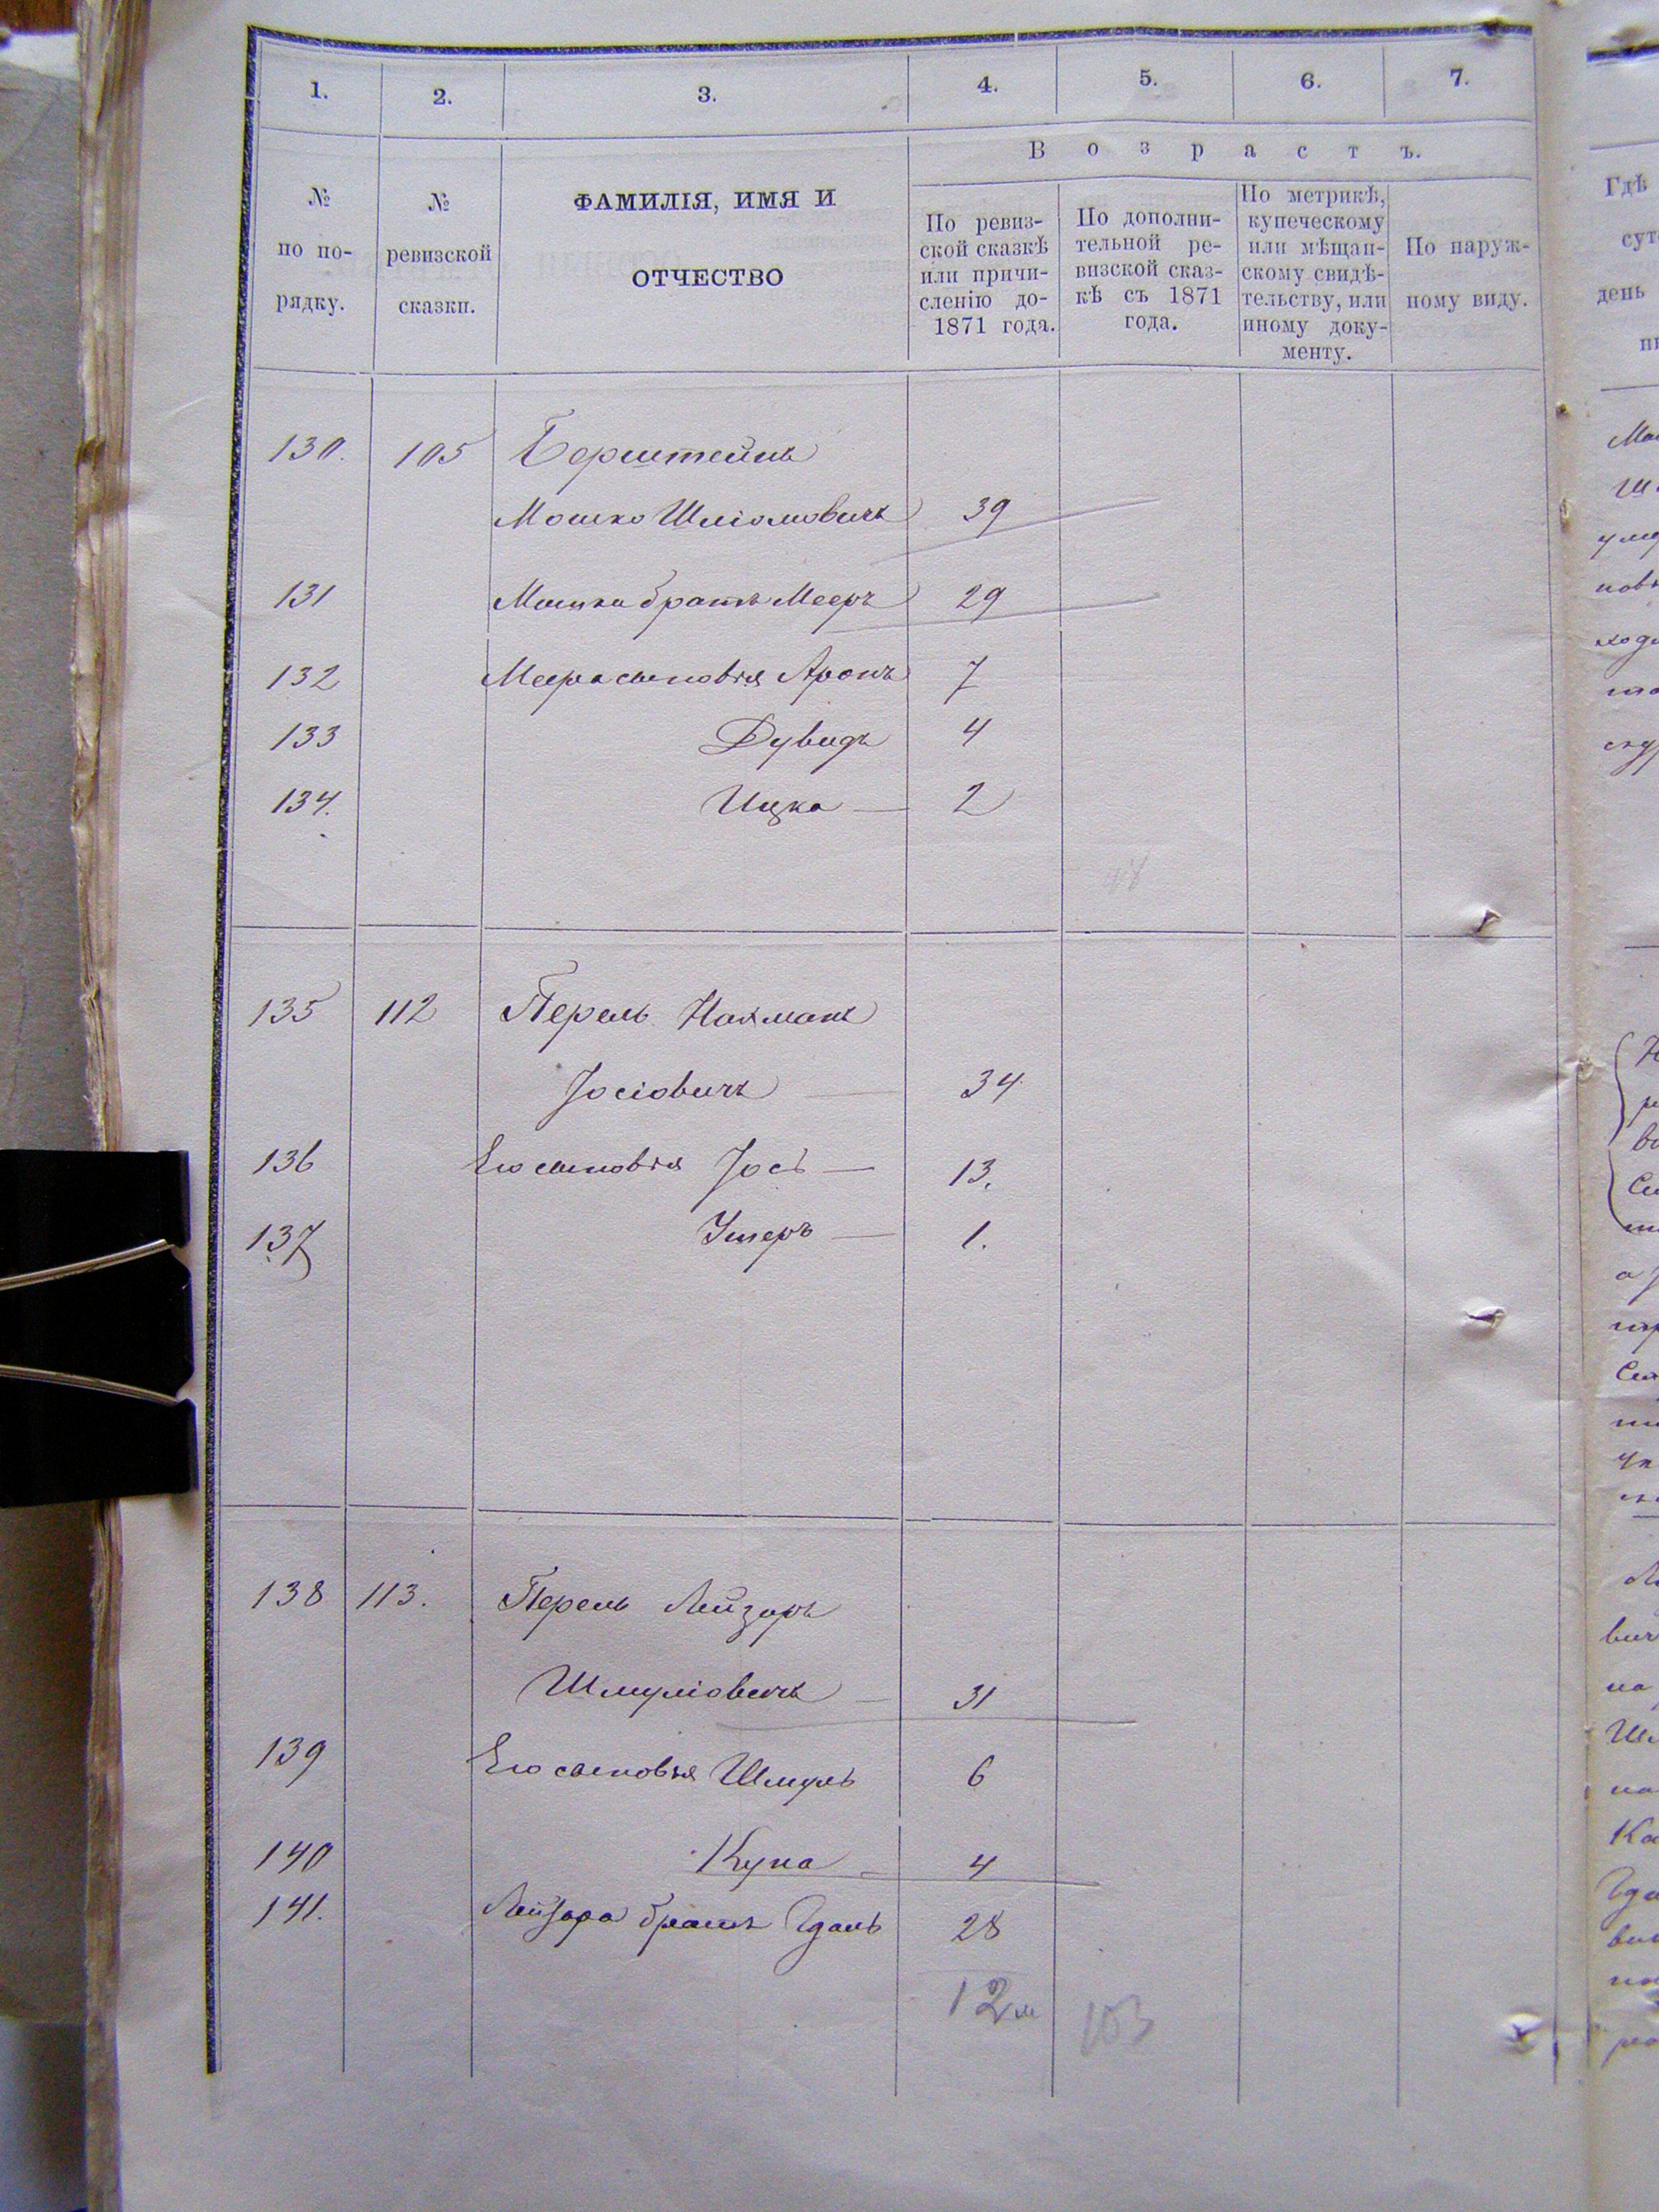 1. 2. 3. 4. 5. 6. 7.
В о з р а с т ъ.
№ по по-рядку.
№ ревизской сказки.
ФАМИЛІЯ, ИМЯ И
ОТЧЕСТВО
По ревиз-
ской сказкѣ
или причи-
сленію до-
1871 года.
По дополни-
тельной ре-
визской сказ-
кѣ съ 1871
года.
По метрикѣ,
купеческому
или мѣщан-
скому свидѣ-
тельству, или
иному доку-
менту.
По наруж-
ному виду.
130. 105 Борштейнъ
Мошко Шліомовичъ 39
131 Мошка братъ Мееръ 29
132 Меера сыновья Аронъ 7
133 Дувидъ 4
134. Ицка — 2
135 112 Перель Нахманъ
Іосіовичъ — 34
136 Его сыновья Іось — 13.
137 Ушеръ — 1.
138 113. Перель Лейзоръ
Шмуліовичъ — 31
139 Его сыновья Шмуль 6
140 Купа — 4
141. Лейзора братъ Гдаль 28
12 м
103